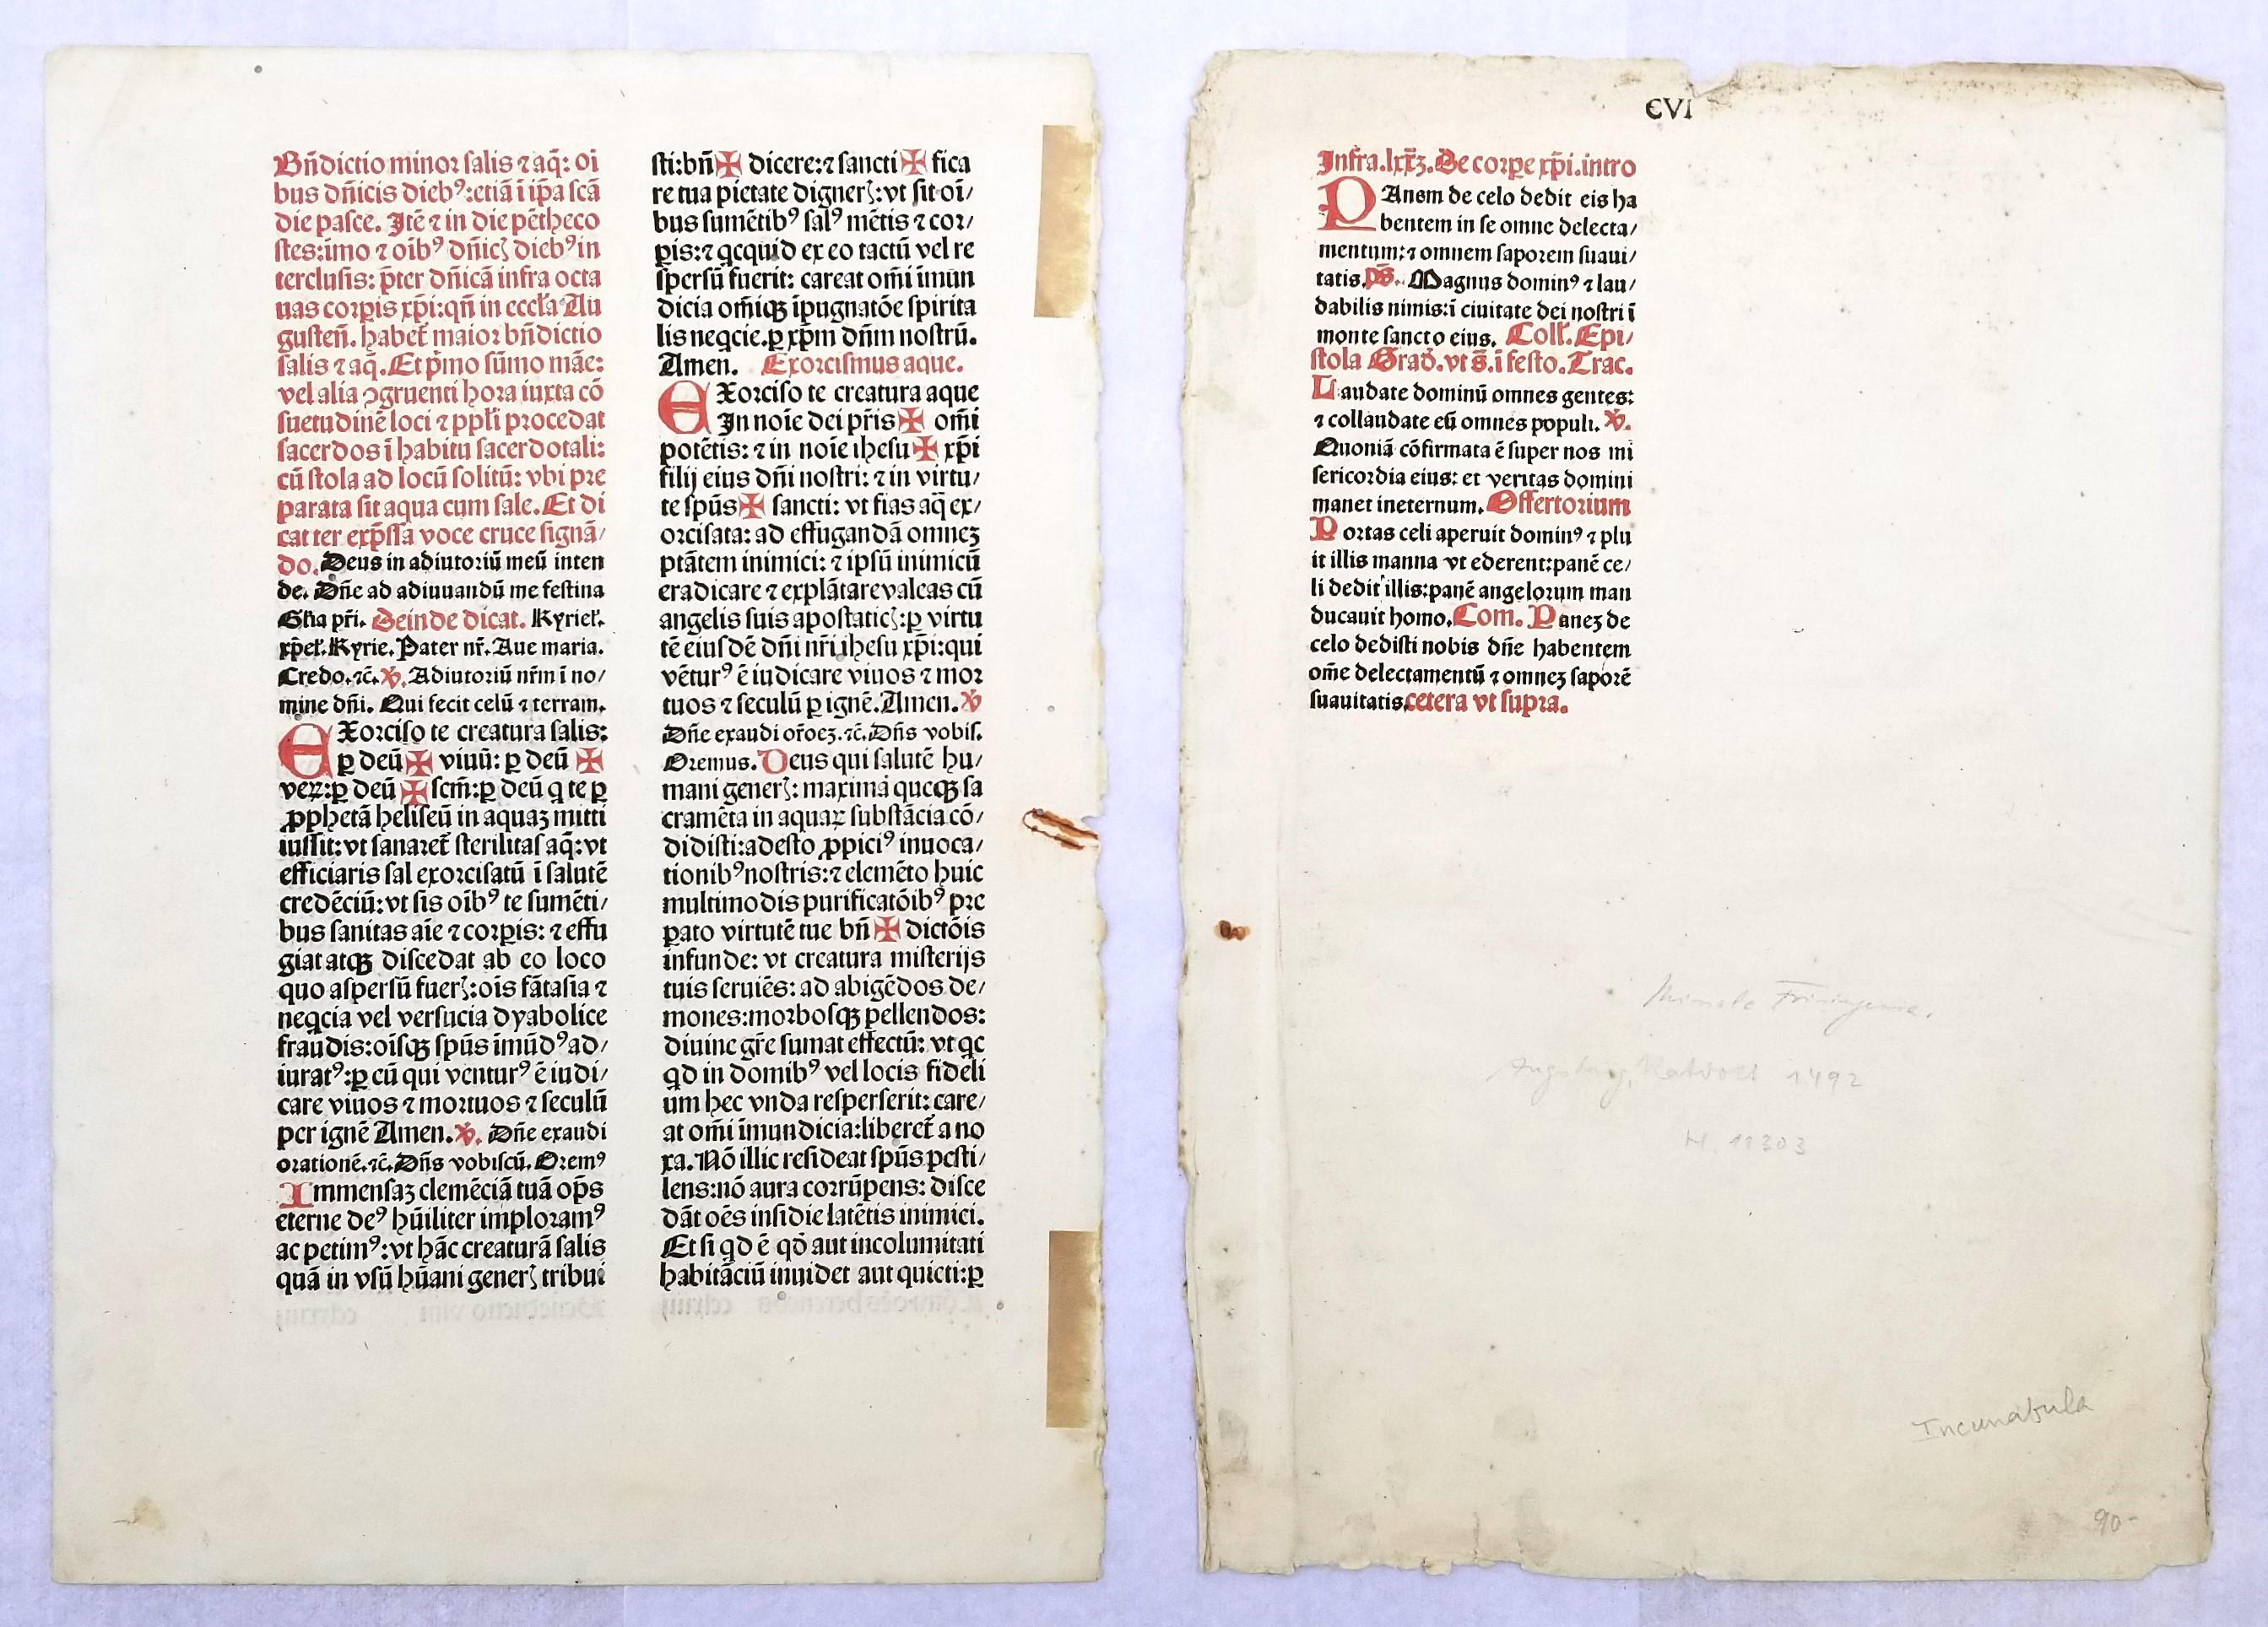 Bñdictio minor salis ⁊ aq̃: oĩ
bus dñicis diebꝰ:etiã ĩ ip̃a scã
die pasce. Itẽ ⁊ in die pẽtheco
stes:ĩmo ⁊ oĩbꝰ dñicꝭ diebꝰ in
terclusis: p̃ter dñicã infra octa
uas corꝑis xp̃i:qñ in eccl̃a Au
gusteñ. habet̃ maior bñdictio
salis ⁊ aq̃. Et p̃mo sũmo mãe:
vel alia ꝯgruenti hora iuxta cõ
suetudinẽ loci ⁊ ppl̃i procedat
sacerdos ĩ habitu sacerdotali:
cũ stola ad locũ solitũ: vbi pre
parata sit aqua cum sale. Et di
cat ter exp̃ssa voce cruce signã/
do. Deus in adiutoriũ meũ inten
de. Dñe ad adiuuandũ me festina
Gl̃ia pr̃i. Deinde dicat. Kyriel̃.
xp̃el̃. Kyrie. Pater nr̃. Aue maria.
Credo.⁊c̃. ℣. Adiutoriũ nr̃m ĩ no/
mine dñi. Qui fecit celũ ⁊ terram.
EXorciso te creatura salis:
ꝑ deũ ✠ viuũ: ꝑ deũ ✠
veꝝ:ꝑ deũ ✠ scm̃:ꝑ deũ q te ꝑ
ꝓphetã heliseũ in aquaꝫ mitti
iussit:vt sanaret̃ sterilitas aq̃:vt
efficiaris sal exorcisatũ ĩ salutẽ
credẽciũ:vt sis oĩbꝰ te sumẽti/
bus sanitas aĩe ⁊ corꝑis: ⁊ effu
giat atqꝫ discedat ab eo loco
quo aspersũ fuerꝭ:oĩs fãtasia ⁊
neqcia vel versucia dyabolice
fraudis:oĩsqꝫ spũs ĩmũdꝰ ad/
iuratꝰ:ꝑ eũ qui venturꝰ ẽ iudi/
care viuos ⁊ mortuos ⁊ seculũ
per ignẽ Amen. ℣. Dñe exaudi
orationẽ.⁊c̃. Dñs vobiscũ. Oremꝰ
Immensaꝫ clemẽciã tuã op̃s
eterne deꝰ hũiliter imploramꝰ
ac petimꝰ:vt hãc creaturã salis
quã in vsũ hũani generꝭ tribui
sti:bñ ✠ dicere:⁊ sancti ✠ fica
re tua pietate dignerꝭ:vt sit oĩ/
bus sumẽtibꝰ salꝰ mẽtis ⁊ cor/
ꝑis:⁊ qcquid ex eo tactũ vel re
spersũ fuerit: careat om̃i ĩmun
dicia om̃iqꝫ ĩpugnatõe spirita
lis neqcie.ꝑ xp̃m dñm nostrũ.
Amen. Exorcismus aque.
EXorciso te creatura aque
In noĩe dei pr̃is ✠ om̃i
potẽtis: ⁊ in noĩe ihesu ✠ xp̃i
filij eius dñi nostri: ⁊ in virtu/
te spũs ✠ sancti: vt fias aq̃ ex/
orcisata: ad effugandã omneꝫ
ptãtem inimici: ⁊ ipsũ inimicũ
eradicare ⁊ explãtare valeas cũ
angelis suis apostaticꝭ:ꝑ virtu
tẽ eiusdẽ dñi nr̃i ihesu xp̃i:qui
vẽturꝰ ẽ iudicare viuos ⁊ mor
tuos ⁊ seculũ ꝑ ignẽ. Amen. ℣
Dñe exaudi or̃oeꝫ.⁊c̃. Dñs vobis.
Oremus. Deus qui salutẽ hu/
mani generꝭ: maxima queqꝫ sa
cramẽta in aquaꝝ substãcia cõ/
didisti:adesto ꝓpiciꝰ inuoca/
tionibꝰ nostris:⁊ elemẽto huic
multimodis purificatõibꝰ pre
pato virtutẽ tue bñ ✠ dictõis
infunde: vt creatura misterijs
tuis seruiẽs: ad abigẽdos de/
mones:morbosqꝫ pellendos:
diuine gr̃e sumat effectũ: vt qc
qd in domibꝰ vel locis fideli
um hec vnda resperserit: care/
at om̃i ĩmundicia:liberet̃ a no
xa. Nõ illic resideat spũs pesti/
lens:nõ aura corrũpens: disce
dãt oẽs insidie latẽtis inimici.
Et si qd ẽ qð aut incolumitati
habitãciũ inuidet aut quieti:ꝑ
CVI
Infra.lxx̃ꝫ. De corꝑe xp̃i.intro
PAnem de celo dedit eis ha
bentem in se omne delecta/
mentum:⁊ omnem saporem suaui/
tatis. p̃s. Magnus dominꝰ ⁊ lau/
dabilis nimis:ĩ ciuitate dei nostri ĩ
monte sancto eius. Coll̃. Epi/
stola Grad̃. vt s̃. ĩ festo. Trac.
Laudate dominũ omnes gentes:
⁊ collaudate eũ omnes populi. ℣.
Quoniã cõfirmata ẽ super nos mi
sericordia eius: et veritas domini
manet ineternum. Offertorium
Portas celi aperuit dominꝰ ⁊ plu
it illis manna vt ederent:panẽ ce/
li dedit illis:panẽ angelorum man
ducauit homo. Com. Paneꝫ de
celo dedisti nobis dñe habentem
om̃e delectamentũ ⁊ omneꝫ saporẽ
suauitatis. cetera vt supra.
Augsburg, Ratdolt 1492
H. 11303
Incunabula
90-